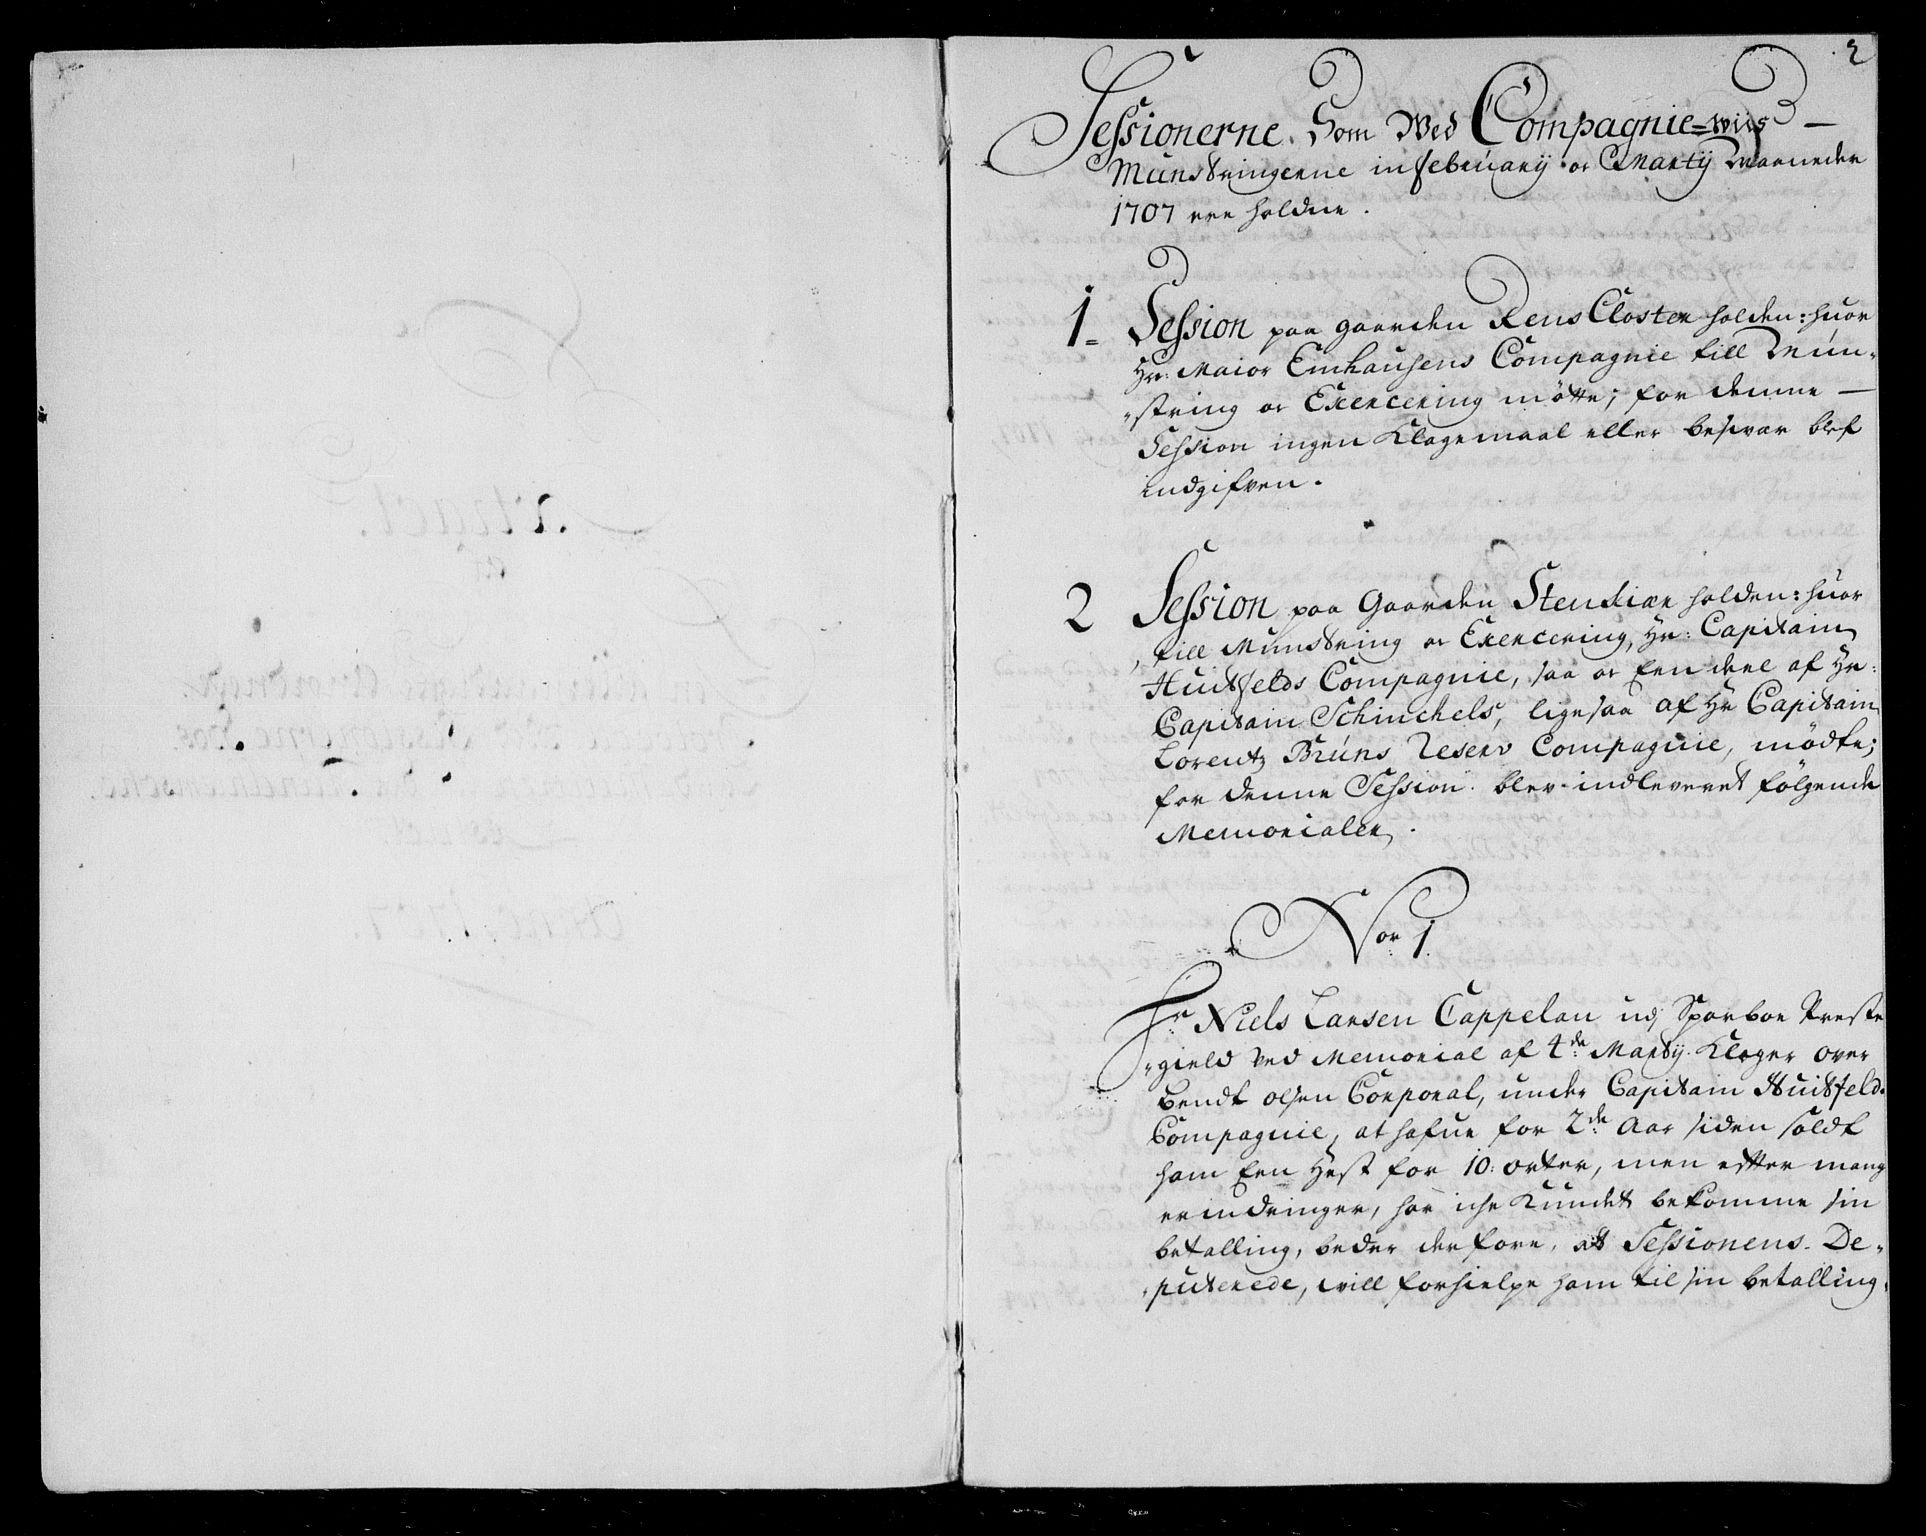 2
Sessionerne Som Wed Compagnie=wiis —
Munstringerne in february oc Marty Maaneder
1707 ere holdne.
1= Session paa gaarden Rens Closter holden: huor
Hr: Maior Emhausens Compagnie till Mun-
string oc Exercering mötte; for denne —
Session ingen Klagemaal eller besvær blef
indgifven.
2 Session paa Gaarden Stenkiær holden: huor
till Munstring oc Exercering, Hr: Capitain
Huitfelds Compagnie, saa oc Een deel af Hr:
Capitain Schinckels, ligesaa af Hr Capitain
Lorentz Bruns Reserv Compagnie, mödte;
for denne Session blev indleveret fölgende
Memorialer.
Nor 1.
Hr Niels Larsen Cappelan udj Sparboe Preste
gield Ved Memorial af 4de Marty Klager over
Bendt olsen Corporal, under Capitain Huitfeld
Compagnie, at hafue for 2de Aar siden soldt
ham Een Hest for 10: orter, men efter mang
erindringer, har iche Kundet bekomme sin
betalling, beder derfore, at Sessionens De-
puterede, will forhielpe ham til sin betalling.